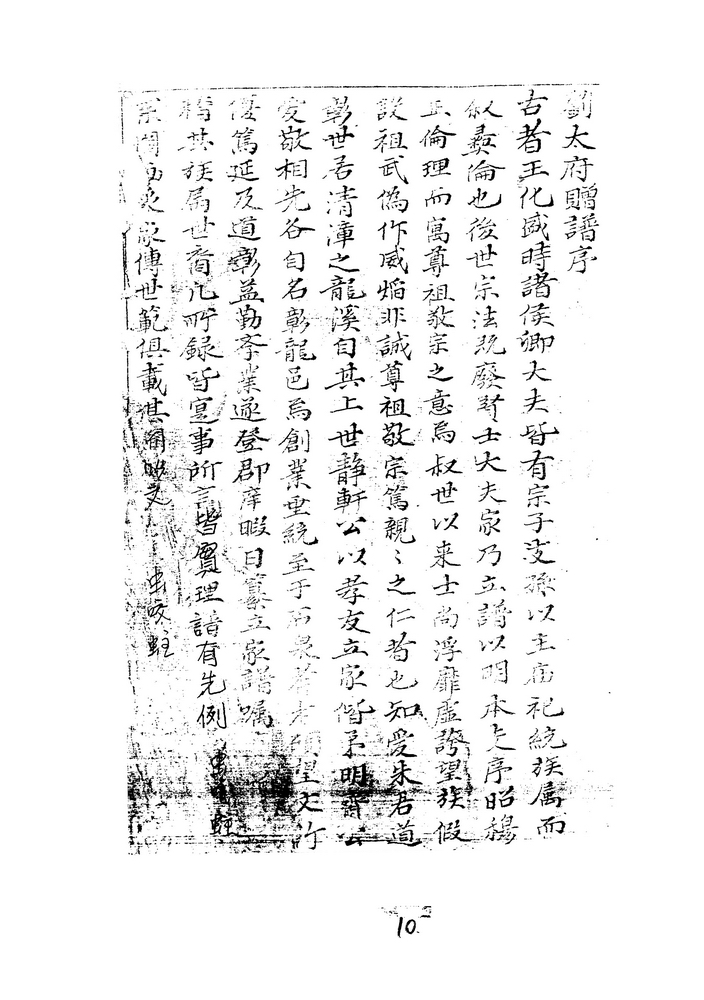 劉太府贈譜序
古者王化盛時諸侯卿大夫皆有宗子支孫以主庙祀統族属而
叙彝倫也後世宗法既廢賢士大夫家乃立譜以明本支序昭穆
正倫理而寓尊祖敬宗之意焉叔世以来士尚浮靡虛誇望族假
設祖武偽作威焰非誠尊祖敬宗篤親〻之仁者也知愛朱君道
彰世居清漳之龍溪自其上世静軒公以孝友立家偕弟明齋公
愛敬相先各自名彰龍邑為創業垂統至于石泉著老 望文行
優篤延及道彰益勤李業遂登郡庠暇日纂立家譜嘱
稽其族属世裔凡所録皆寔事所言皆實理譜有先例 虫蛀
 家傳世範俱載 虫咬蛀
10.